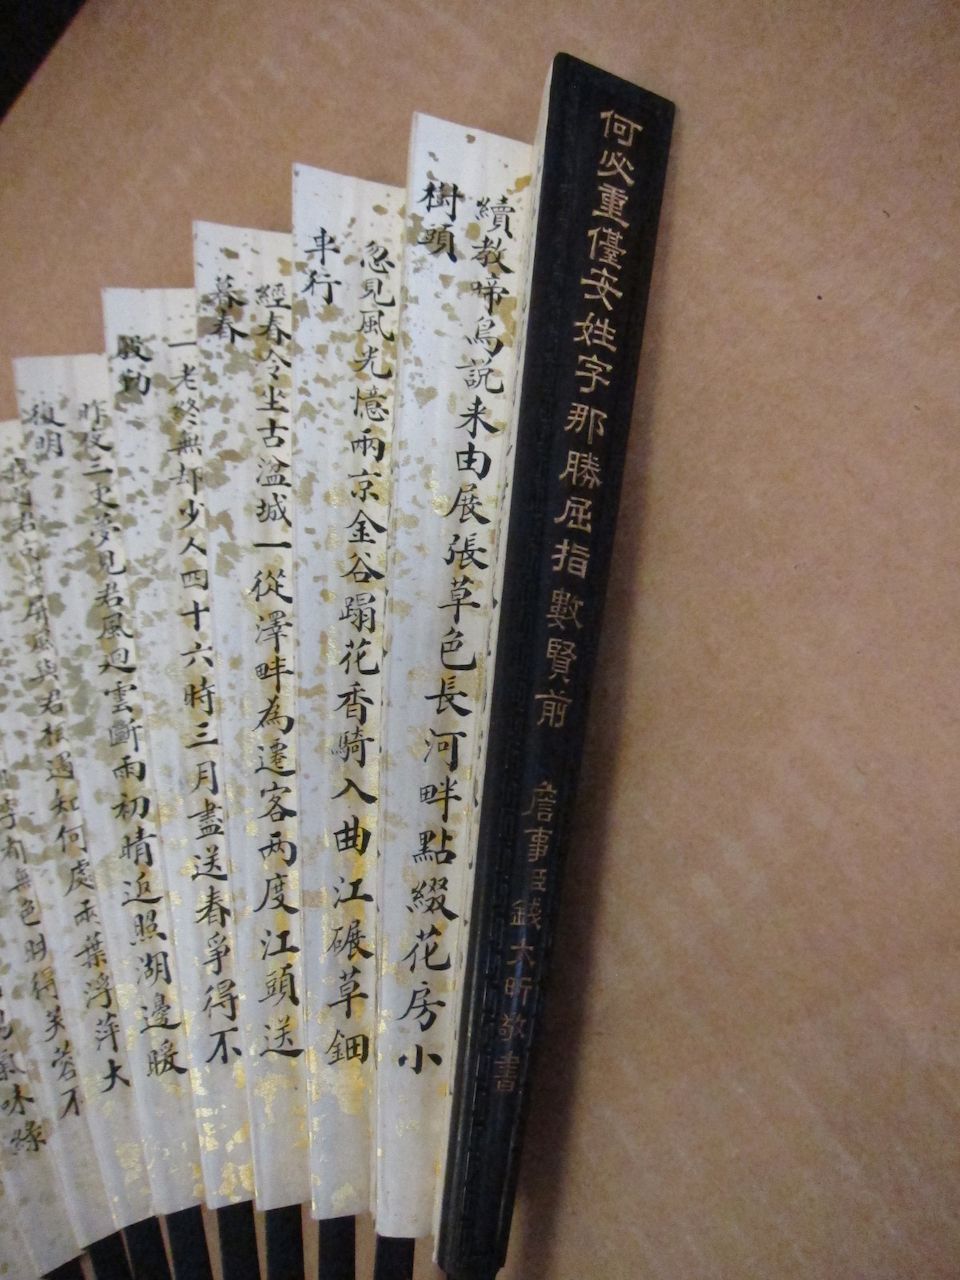 何必重儓安姓字那勝屈指數賢前
詹事臣錢大昕敬書
續教啼鳥説来由展張草色長河畔點綴花房小
樹頭
忽見風光憶兩京金谷蹋花香騎入曲江碾草鈿
車行
經春今坐古湓城一從澤畔為遷客两度江頭送
暮春
一老終無却少人四十六時三月盡送春爭得不
殷勤
昨夜三更夢見君風迴雲斷雨初晴返照湖邊暖
復明
屏風與君相遇知何處兩葉浮萍大
無色時得芙蓉不
味緣